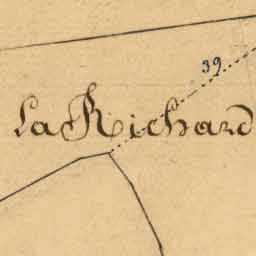 39
La Richard